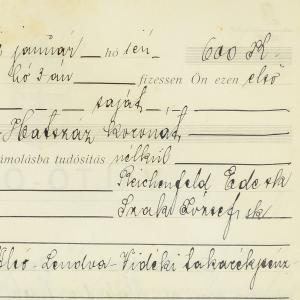 január hó 1én 600 K
hó 3 án fizessen Ön ezen első
saját
Hatszáz koronát
számolásba tudósítás nélkül
Reichenfeld Ede sk
József sk
Alsó-Lendva-Vidéki takarékpénz